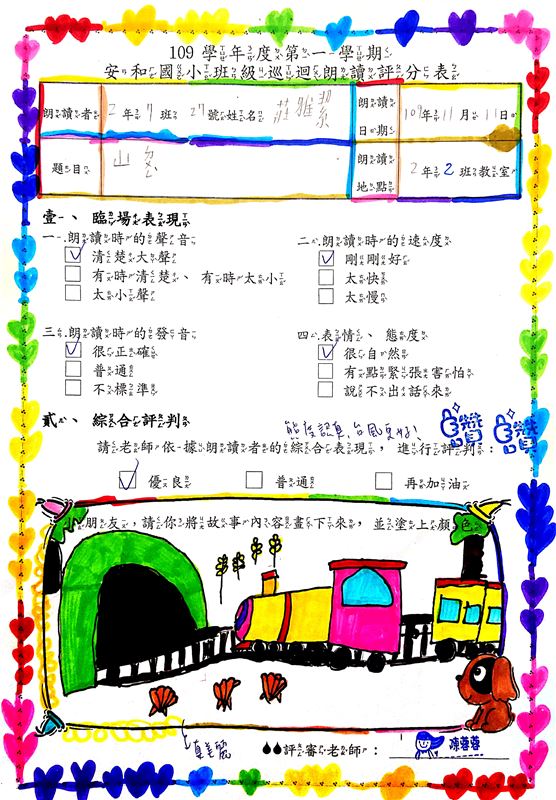 109 學年度第一學期
安和國小班級巡迴朗讀評分表
朗讀者 2年7班27號姓名 莊雅絜 朗讀日期 109年11月11日
題目 山ㄉㄨㄥˋ 朗讀地點 2年2班教室
壹、臨場表現
一、朗讀時的聲音 二、朗讀時的速度
清楚大聲 剛剛好
有時清楚、有時太小 太快
太小聲 太慢
三、朗讀時的發音 四、表情、態度
很正確 很自然
普通 有點緊張害怕
不標準 說不出話來
貳、綜合評判
態度認真,台風更好! 讚 讚
請老師依據朗讀者的綜合表現,進行評判:
優良 普通 再加油
小朋友,請你將故事內容畫下來,並塗上顏色
真美麗
評審老師: 陳蓉蓉